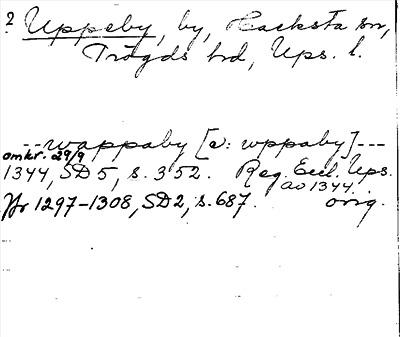 2 Uppeby, by, Hacksta sn,
Trögds hd, Ups. l.
--wappaby [ɔ: wppaby]---
omkr. 29/9
1344, SD 5, s. 352. Reg. Eccl. Ups.
av 1344.
Jfr 1297-1308, SD 2, s. 687. orig.